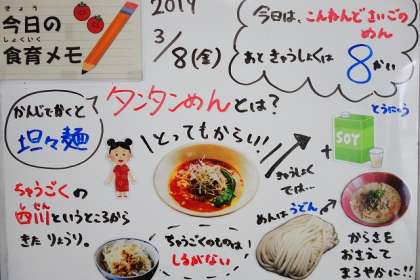 きょう
今日の
しょくいく
食育メモ
2019
3/8(金)
今日は、こんねんどさいごの
めん
あと きゅうしょくは 8 かい
かんじでかくと
坦々麺
タンタンめんとは?
とってもからい!
きゅうしょく
では…
+
SOY
とうにゅう
ちゅうごくの
しせん
四川というところから
きた りょうり。
ちゅうごくのものは
しるがない
めんはうどん
からさを
おさえて
まろやかに!!